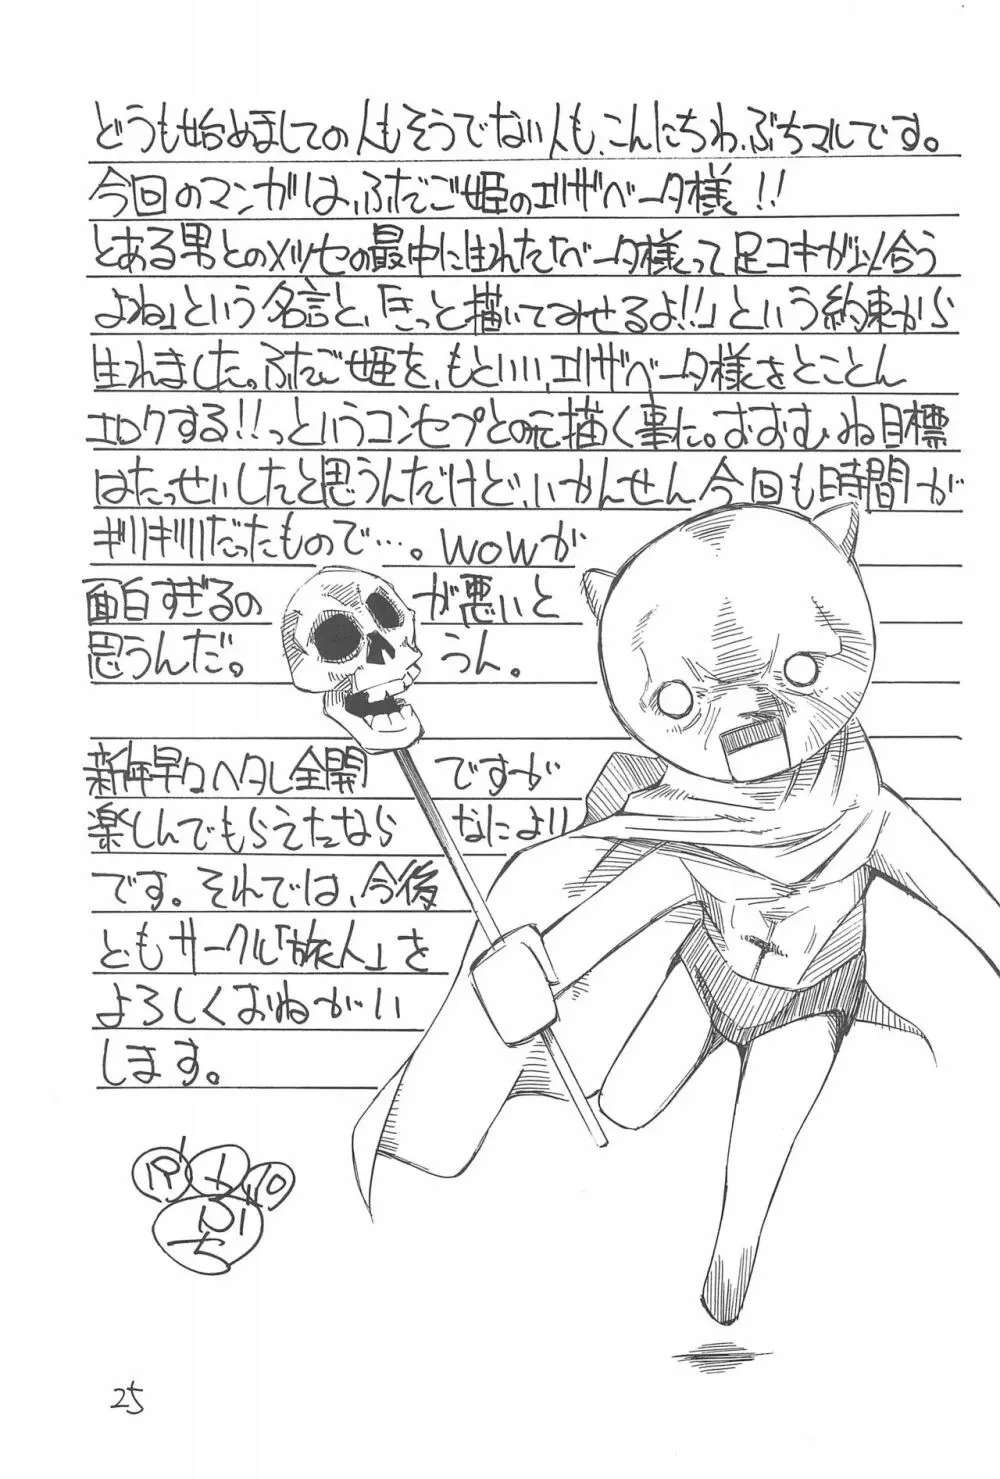 どうも始めましての人もそうでない人も、こんにちわ、ぶちマルです。
今回のマンガは、ふたご姫のエリザベータ様!!
とある男とのメッセの最中に生れた「ベータ様って足コキが似合う
よね」という名言と、「きっと描いてみせるよ!!」という約束から
生れました。ふたご姫を、もといい、エリザベータ様をとことん
エロクする!!っというコンセプとの元描く事に。おおむね目標
はたっせいしたと思うんだけど、いかんせん今回も時間が
ギリギリだったもので…。wowが
面白すぎるの が悪いと
思うんだ。 うん。
新年早々ヘタレ全開 ですが
楽しんでもらえたなら なにより
です。それでは、今後
ともサークル「旅人」を
よろしくおねがい
します。
ぶち
25